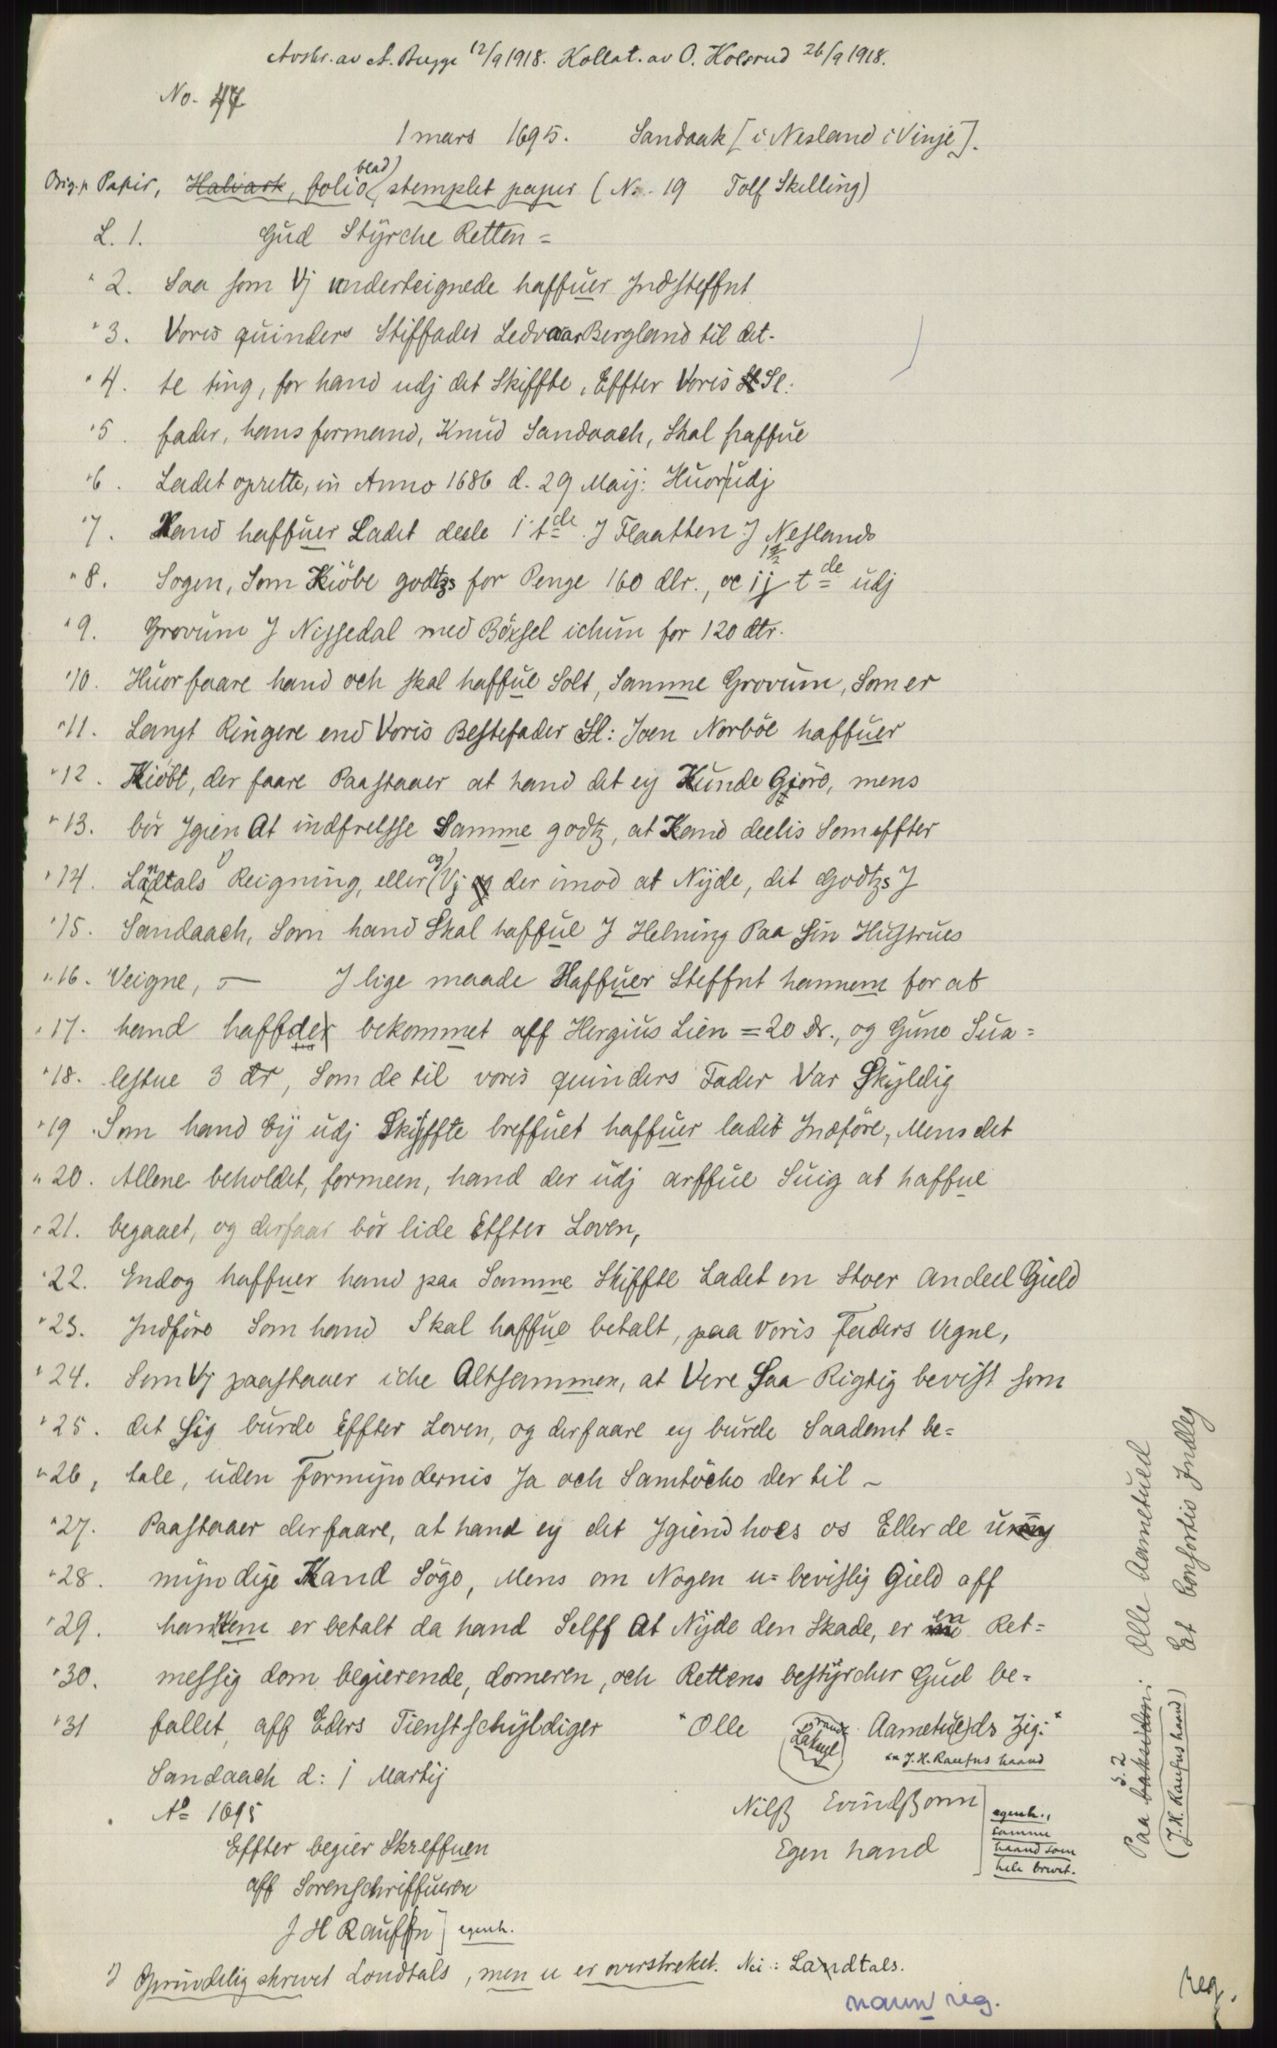 Avskr. av A. Bugge 12/9 1918. Kollat. av O. Kolsrud 26/9 1918.
No. 47
1 mars 1695. Sandaak [i Nesland i Vinje].
Orig. p. Papir, Halvark, folio (blad) stemplet papir (No. 19 Tolf Skilling)
L. 1. Gud Stÿrche Retten =
" 2. Saa som Vj underteignede haffuer Jndsteffnt
" 3. Voris quinders Stiffader Ledvaar Bergland til det-
" 4. te ting, for hand udj det Skiffte, Effter Voris Sl:
" 5. fader, hans formand, Knud Sandaach, Skal haffue
" 6. Ladet oprette, in Anno 1686 d. 29 Maij: Huor udj
" 7. Hand haffuer Ladet deele 1 tde J Flaatten J Neslands
" 8. Sogen, Som Kiöbe godtzs for Penge 160 dlr., oc ij tde udj
" 9. Grovum J Nissedal med Böxsel ichun for 120 dlr.
" 10. Huor faare hand och skal haffue Solt, Samme Grovum, Som er
" 11. Langt Ringere end Voris Bestefader Sl: Joen Norböe haffuer
" 12. Kiöbt, der faare Paastaaer at hand det ey Kunde Giöre, mens
" 13. bör Jgien At indfrelsse Samme godtz, at Kand deelis Som effter
" 14. Landtals 1) Reigning, eller (og) Vj der imod at Nÿde, det Godtzs J
" 15. Sandaach, Som hand Skal haffue J Helning Paa Sin Hustrues
" 16. Veigne, — J lige maade Haffuer Steffnt hannem for at
" 17. hand haffde bekommet aff Hergius Lien = 20 Dr., og Guno Sua=
" 18. lestue 3 dr, Som de til voris quinders Fader Var Skyldig
" 19. Som hand Eÿ udj Skiffte breffuet haffuer ladet Jndföre, Mens det
" 20. Allene beholdet, formeen, hand der udj arffue Suig at haffue
" 21. begaaet, og derfaar bör lide Effter Loven,
" 22. Endog haffuer hand paa Samme Skiffte Ladet en Stoer Andeel Gield
" 23. Jndföre Som hand Skal haffue betalt, paa Voris Faders Vegne,
" 24. Som Vj paastaaer iche Altsammen, at Vere Saa Rigtig bevist som
" 25. det Sig burde Effter Loven, og derfaare ey burde Saadant be=
" 26. tale, uden Formÿndernis Ja och Samtöche der til ~
" 27. Paastaaer derfaare, at hand ey det Jgiend hoes os Eller de u
" 28. mÿndige Kand Söge, Mens om Nogen u= bevislig Gield aff
" 29. hannem er betalt da hand Selff At Nÿde den Skade, er en Ret=
" 30. messig dom begierende, domeren, och Rettens bestÿrcher Gud be=
" 31 fallet, aff Eders Tienstschÿldiger "Olle Aametueds Zig:"
Laksegl
"–" J. H. Raufns haand
Sandaach d: 1 Martij
Ao 1695
Nilsz Evindszonn
Egen hand
] egenh., samme haand som hele brevet.
Effter begier Skreffuen
aff Sorenschriffueren
J H Rauffn] egenh.
1) Oprindelig skrevet Londtals, men u er overstreket. Nei: Landtals.
navn reg.
reg.
Paa s. 2 baksiden: Olle Aametued
Et Consortis Indleg
(J. H. Raufns haand)